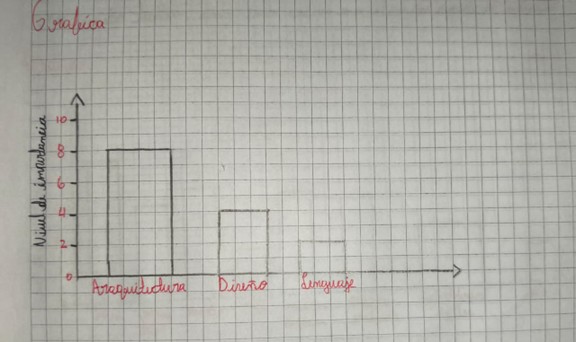 Grafica
Nivel de importancia
10
8
6
4
2
0
Araquitectura
Diseño
Lenguaje